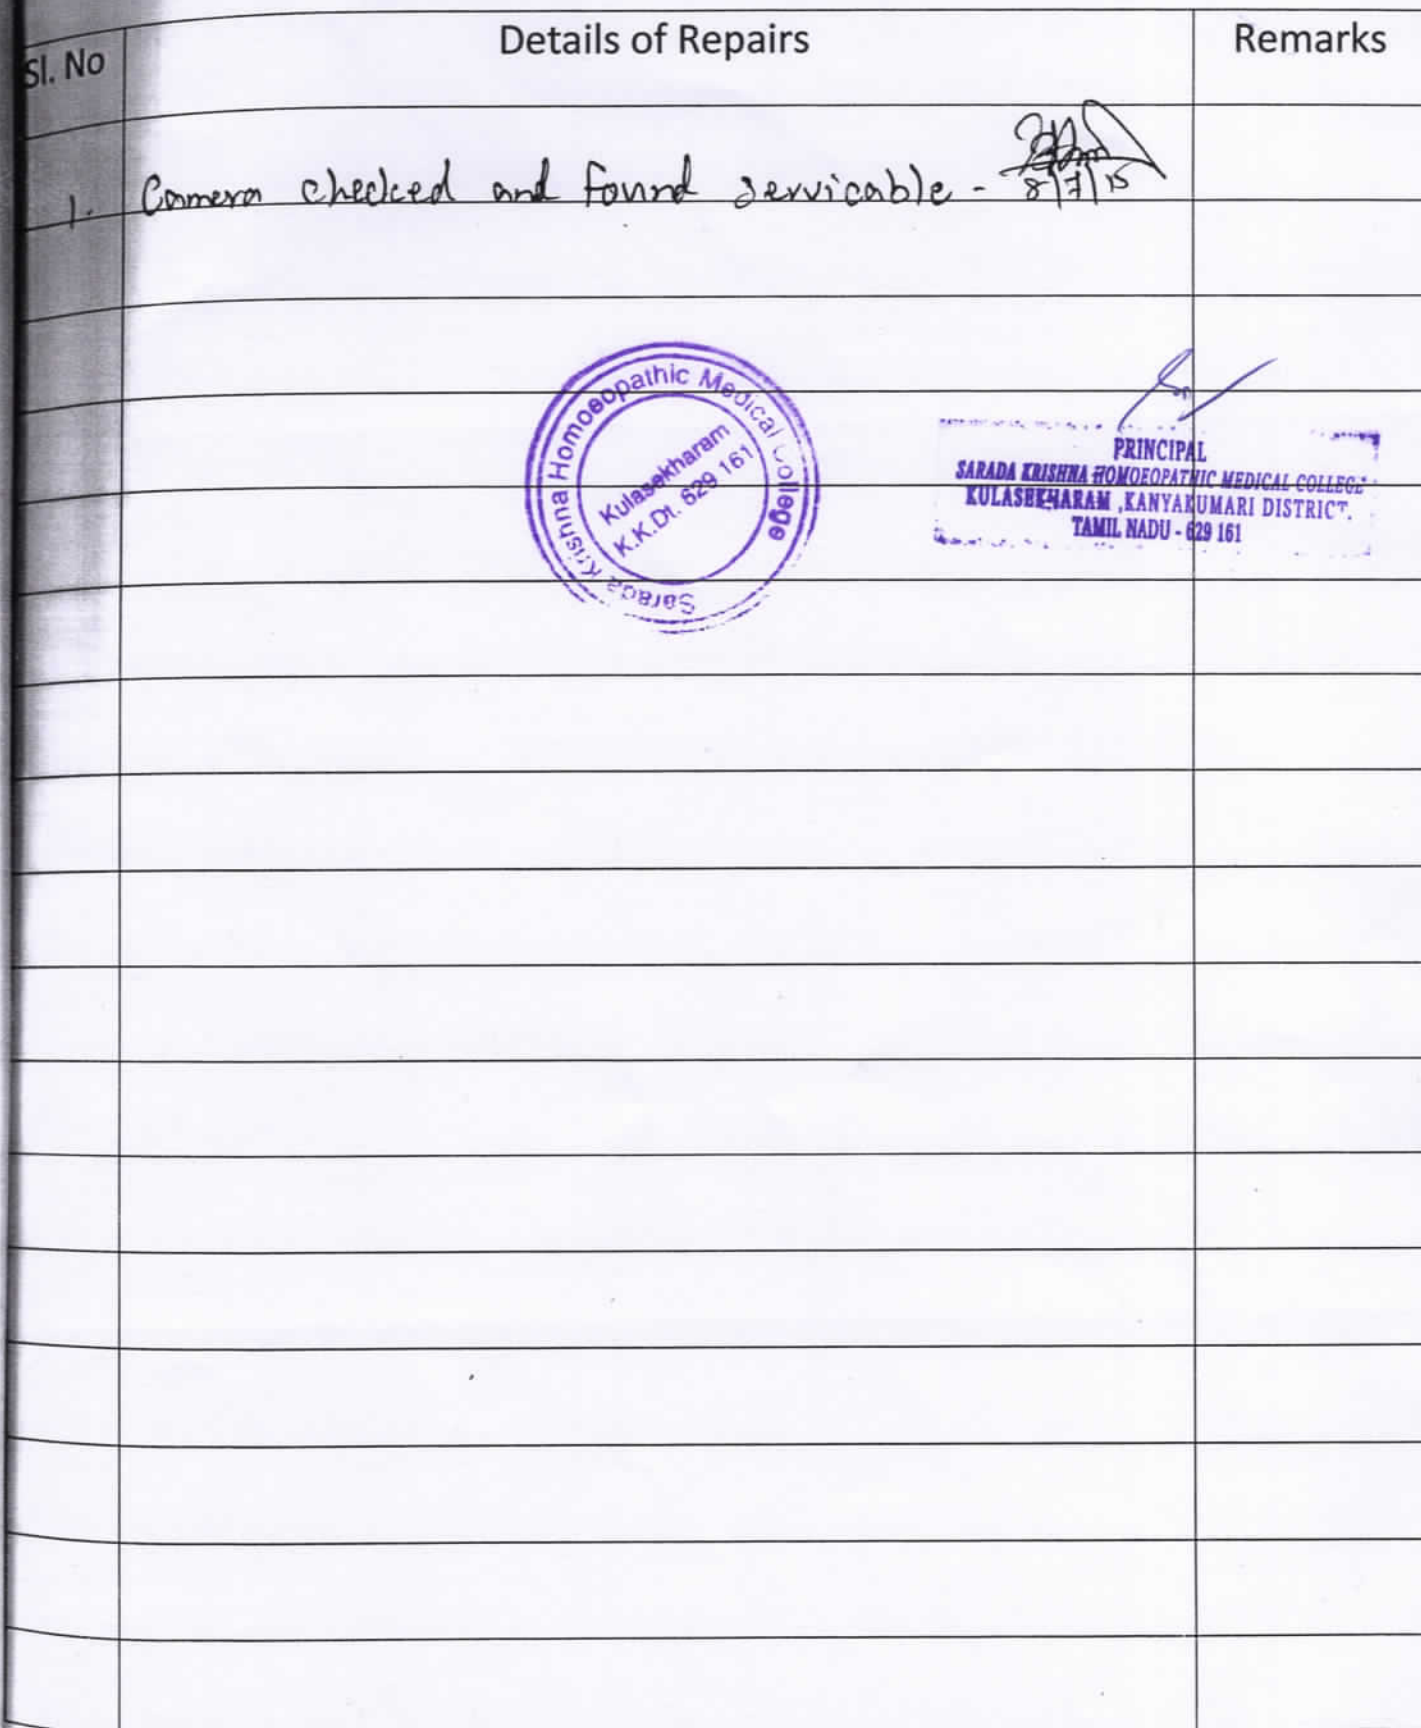 Sl. No Details of Repairs Remarks
1. Camera checked and found servicable - 
8/7/15
Sarada Krishna Homoeopathic Medical College
Kulasekharam
K.K.Dt. 629 161
PRINCIPAL
SARADA KRISHNA HOMOEOPATHIC MEDICAL COLLEGE
KULASEKHARAM ,KANYAKUMARI DISTRICT.
TAMIL NADU - 629 161